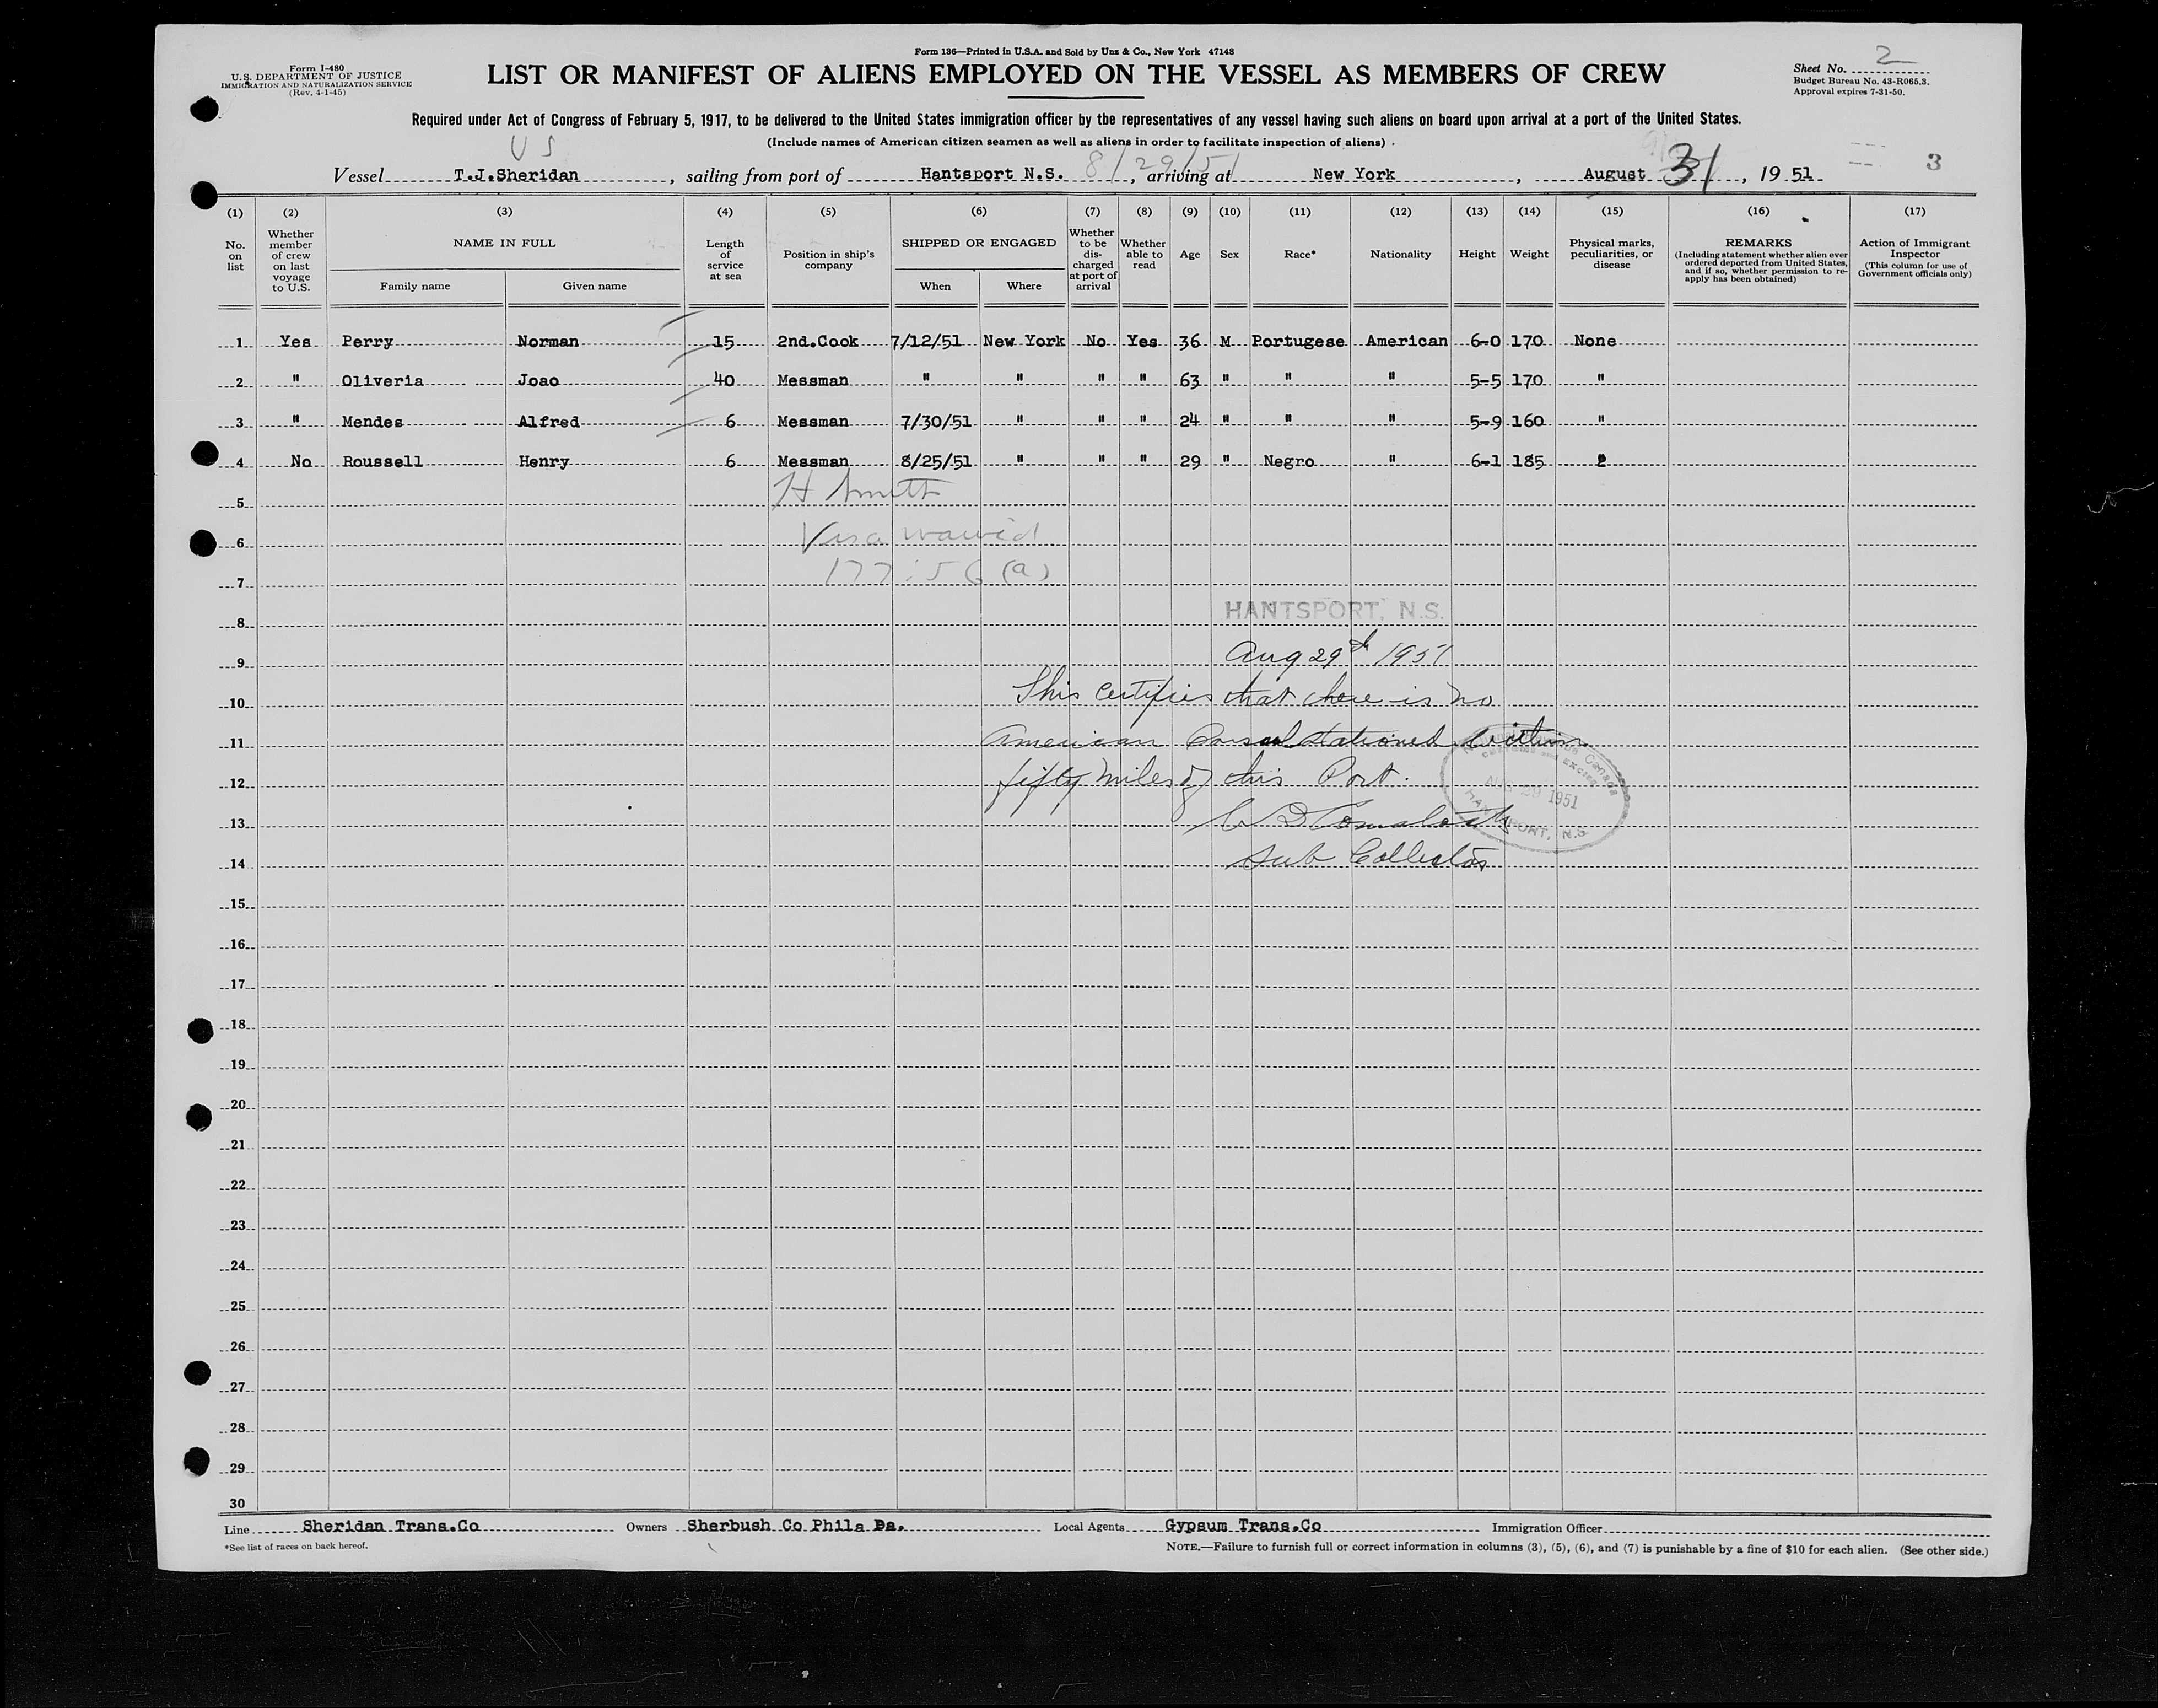 Form 136—Printed in U.S.A. and Sold by Unz & Co., New York 47148
Form I-480
U.S. DEPARTMENT OF JUSTICE
IMMIGRATION AND NATURALIZATION SERVICE
(Rev. 4-1-45)
LIST OR MANIFEST OF ALIENS EMPLOYED ON THE VESSEL AS MEMBERS OF CREW
Sheet No. 2
Budget Bureau No. 43-R065.3.
Approval expires 7-31-50.
Required under Act of Congress of February 5, 1917, to be delivered to the United States immigration officer by the representatives of any vessel having such aliens on board upon arrival at a port of the United States.
(Include names of American citizen seamen as well as aliens in order to facilitate inspection of aliens)
US
8/29/51
3
Vessel T.J.Sheridan, sailing from port of Hantsport N.S., arriving at New York, August 31, 19 51
(1) (2) (3) (4) (5) (6) (7) (8) (9) (10) (11) (12) (13) (14) (15) (16) (17)
No. on list
Whether member of crew on last voyage to U.S.
NAME IN FULL
Family name
Given name
Length of service at sea
Position in ship's company
SHIPPED OR ENGAGED
When
Where
Whether to be discharged at port of arrival
Whether able to read
Age
Sex
Race*
Nationality
Height
Weight
Physical marks, peculiarities, or disease
REMARKS
(Including statement whether alien ever ordered deported from United States, and if so, whether permission to re-apply has been obtained)
Action of Immigrant Inspector
(This column for use of Government officials only)
1 Yes Perry Norman 15 2nd.Cook 7/12/51 New York No Yes 36 M Portugese American 6-0 170 None
2 " Oliveria Joao 40 Messman " " " " 63 " " " 5-5 170 "
3 " Mendes Alfred 6 Messman 7/30/51 " " " 24 " " " 5-9 160 "
4 No Roussell Henry 6 Messman 8/25/51 " " " 29 " Negro " 6-1 185
5
H Smith
6
Visa waived
7
177.56(a)
HANTSPORT, N.S.
8
Aug 29th 1951
9
This certifies that there is no
10
American Consul stationed within
11
fifty miles of this Port.
12
AUG 29 1951
HANTSPORT, N.S.
13
Sub Collector
14
15
16
17
18
19
20
21
22
23
24
25
26
27
28
29
30
Line Sheridan Trans.Co Owners Sherbush Co Phila Pa. Local Agents Gypsum Trans.Co Immigration Officer
*See list of races on back hereof.
NOTE.—Failure to furnish full or correct information in columns (3), (5), (6), and (7) is punishable by a fine of $10 for each alien. (See other side.)